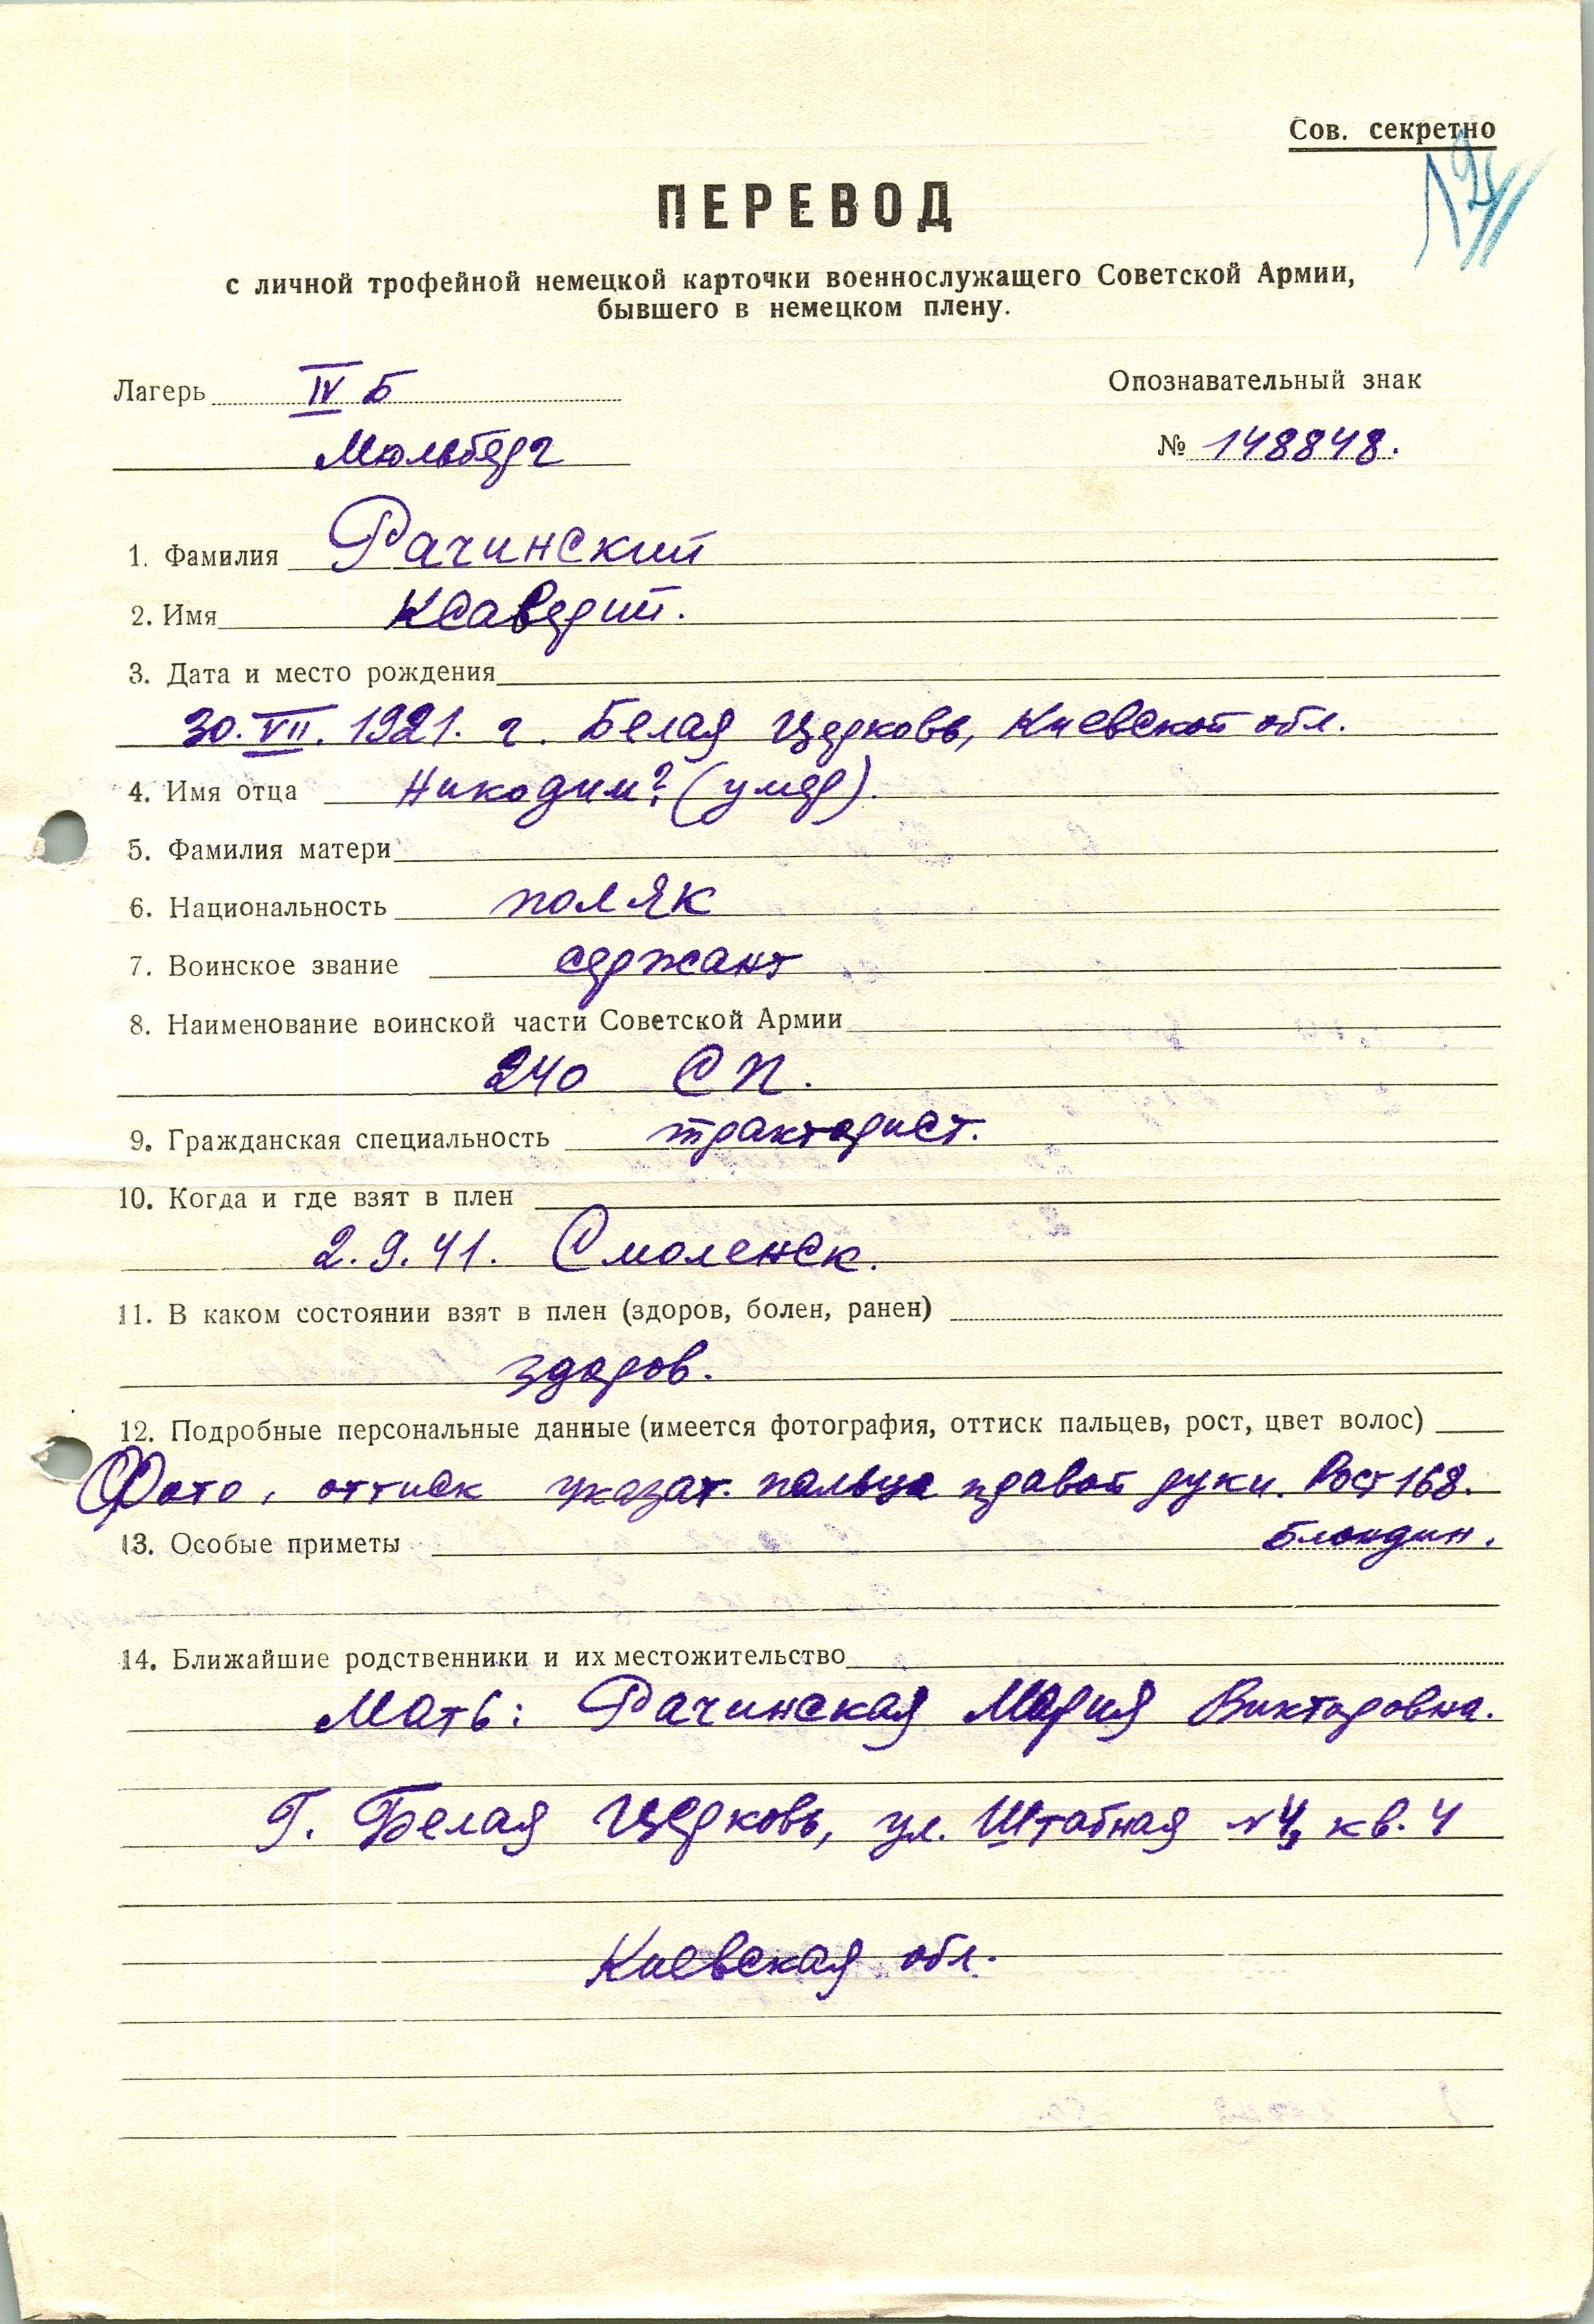 Сов. секретно
ПЕРЕВОД
с личной трофейной немецкой карточки военнослужащего Советской Армии,
бывшего в немецком плену.
Лагерь IV Б
Опознавательный знак
Мюльберг
№ 148848.
1. Фамилия Рачинский
2. Имя Ксаверий.
3. Дата и место рождения
30. VII. 1921. г. Белая Церковь, Киевской обл.
4. Имя отца Никодим? (умер).
5. Фамилия матери
6. Национальность поляк
7. Воинское звание сержант
8. Наименование воинской части Советской Армии
240 СП.
9. Гражданская специальность тракторист.
10. Когда и где взят в плен
2.9.41. Смоленск.
11. В каком состоянии взят в плен (здоров, болен, ранен)
здоров.
12. Подробные персональные данные (имеется фотография, оттиск пальцев, рост, цвет волос)
Фото, оттиск указат. пальца правой руки. Рост 168.
блондин.
13. Особые приметы
14. Ближайшие родственники и их местожительство
Мать: Рачинская Мария Викторовна.
Г. Белая Церковь, ул. Штабная №4, кв. 4
Киевская обл.